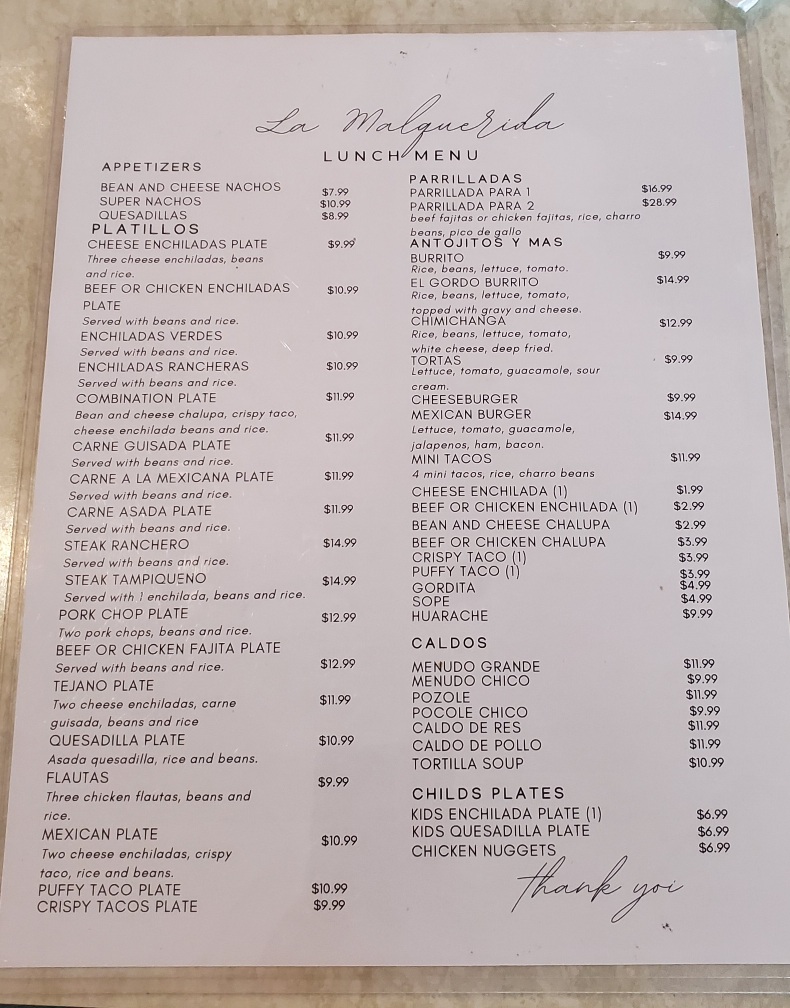 La Malquerida
LUNCH MENU
APPETIZERS
BEAN AND CHEESE NACHOS $7.99
SUPER NACHOS $10.99
QUESADILLAS $8.99
PLATILLOS
CHEESE ENCHILADAS PLATE $9.99
Three cheese enchiladas, beans
and rice.
BEEF OR CHICKEN ENCHILADAS $10.99
PLATE
Served with beans and rice.
ENCHILADAS VERDES $10.99
Served with beans and rice.
ENCHILADAS RANCHERAS $10.99
Served with beans and rice.
COMBINATION PLATE $11.99
Bean and cheese chalupa, crispy taco,
cheese enchilada beans and rice.
CARNE GUISADA PLATE $11.99
Served with beans and rice.
CARNE A LA MEXICANA PLATE $11.99
Served with beans and rice.
CARNE ASADA PLATE $11.99
Served with beans and rice.
STEAK RANCHERO $14.99
Served with beans and rice.
STEAK TAMPIQUENO $14.99
Served with 1 enchilada, beans and rice.
PORK CHOP PLATE $12.99
Two pork chops, beans and rice.
BEEF OR CHICKEN FAJITA PLATE
Served with beans and rice. $12.99
TEJANO PLATE
Two cheese enchiladas, carne $11.99
guisada, beans and rice
QUESADILLA PLATE $10.99
Asada quesadilla, rice and beans.
FLAUTAS $9.99
Three chicken flautas, beans and
rice.
MEXICAN PLATE $10.99
Two cheese enchiladas, crispy
taco, rice and beans.
PUFFY TACO PLATE $10.99
CRISPY TACOS PLATE $9.99
PARRILLADAS
PARRILLADA PARA 1 $16.99
PARRILLADA PARA 2 $28.99
beef fajitas or chicken fajitas, rice, charro
beans, pico de gallo
ANTOJITOS Y MAS
BURRITO $9.99
Rice, beans, lettuce, tomato.
EL GORDO BURRITO $14.99
Rice, beans, lettuce, tomato,
topped with gravy and cheese.
CHIMICHANGA $12.99
Rice, beans, lettuce, tomato,
white cheese, deep fried.
TORTAS $9.99
Lettuce, tomato, guacamole, sour
cream.
CHEESEBURGER $9.99
MEXICAN BURGER $14.99
Lettuce, tomato, guacamole,
jalapenos, ham, bacon.
MINI TACOS $11.99
4 mini tacos, rice, charro beans
CHEESE ENCHILADA (1) $1.99
BEEF OR CHICKEN ENCHILADA (1) $2.99
BEAN AND CHEESE CHALUPA $2.99
BEEF OR CHICKEN CHALUPA $3.99
CRISPY TACO (1) $3.99
PUFFY TACO (1) $3.99
GORDITA $4.99
SOPE $4.99
HUARACHE $9.99
CALDOS
MENUDO GRANDE $11.99
MENUDO CHICO $9.99
POZOLE $11.99
POCOLE CHICO $9.99
CALDO DE RES $11.99
CALDO DE POLLO $11.99
TORTILLA SOUP $10.99
CHILDS PLATES
KIDS ENCHILADA PLATE (1) $6.99
KIDS QUESADILLA PLATE $6.99
CHICKEN NUGGETS $6.99
thank yoi